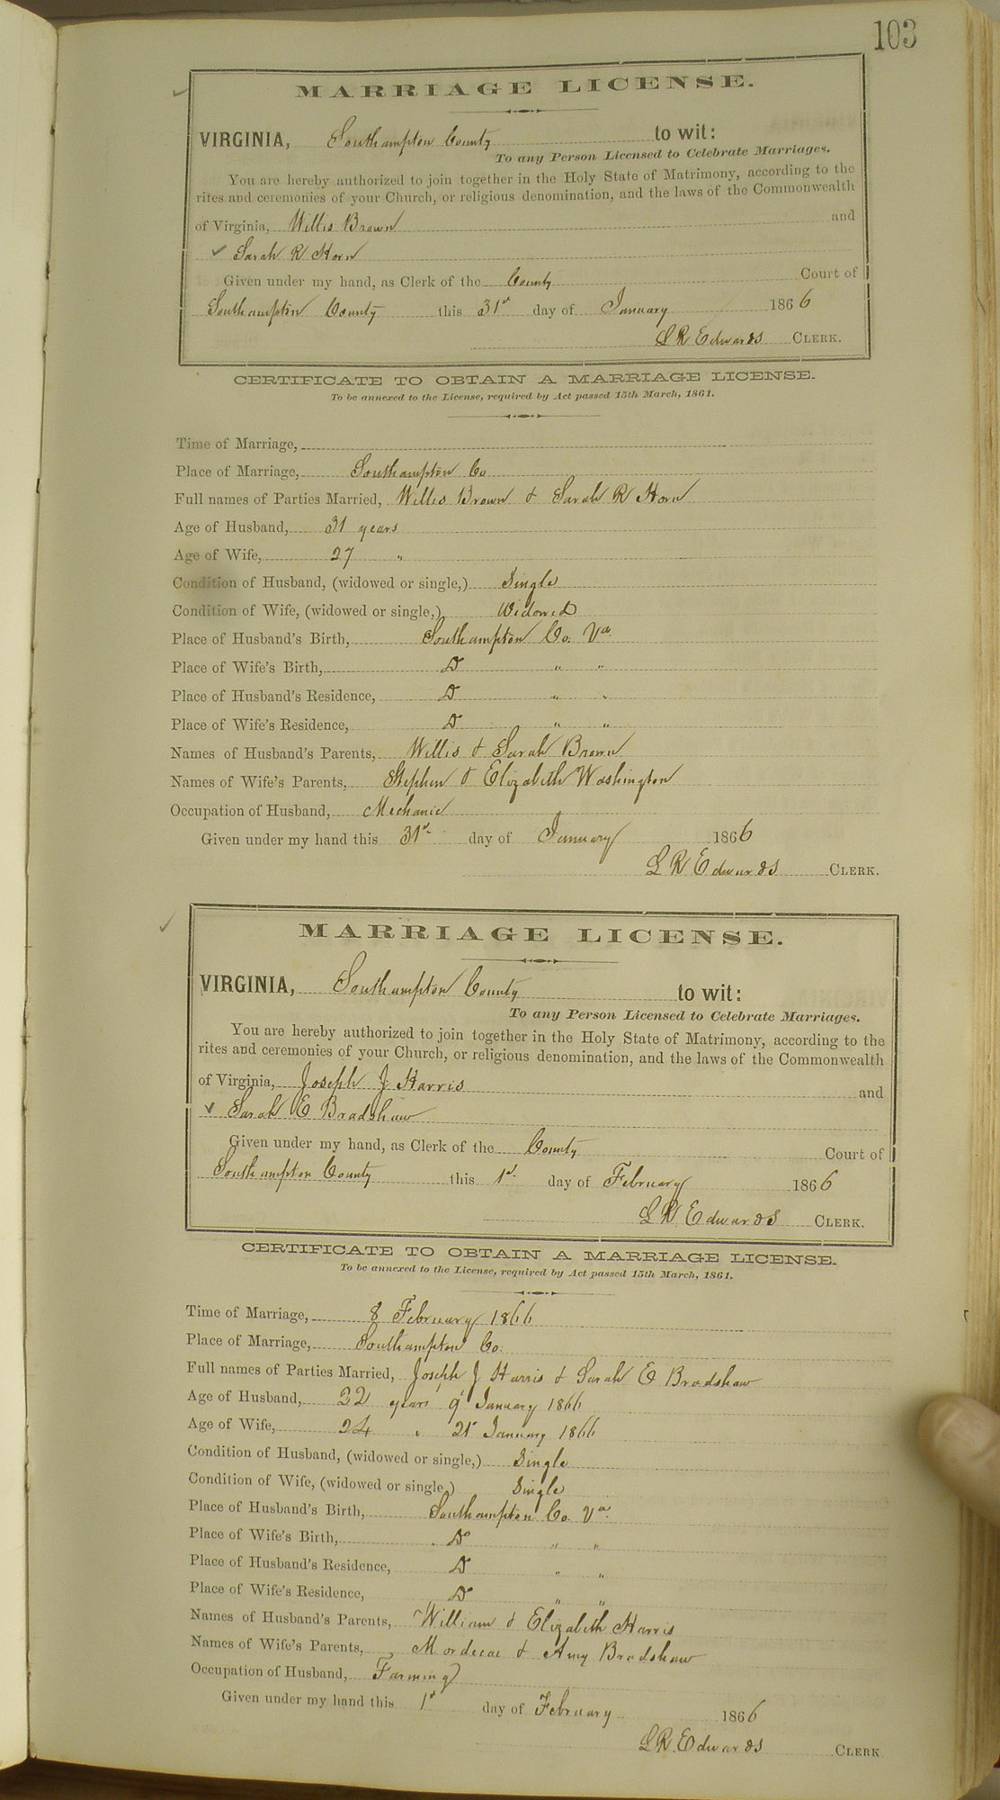 103
MARRIAGE LICENSE.
VIRGINIA, Southampton County to wit:
To any Person Licensed to Celebrate Marriages.
You are hereby authorized to join together in the Holy State of Matrimony, according to the
rites and ceremonies of your Church, or religious denomination, and the laws of the Commonwealth
of Virginia, Willis Brown and
Sarah R Horn
Given under my hand, as Clerk of the County Court of
Southampton County this 31st day of January 1866
L R Edwards CLERK.
CERTIFICATE TO OBTAIN A MARRIAGE LICENSE.
To be annexed to the License, required by Act passed 15th March, 1861.
Time of Marriage,
Place of Marriage, Southampton Co
Full names of Parties Married, Willis Brown & Sarah R Horn
Age of Husband, 31 years
Age of Wife, 27 "
Condition of Husband, (widowed or single,) Single
Condition of Wife, (widowed or single,) Widowed
Place of Husband's Birth, Southampton Co. Va.
Place of Wife's Birth, Do " "
Place of Husband's Residence, Do " "
Place of Wife's Residence, Do " "
Names of Husband's Parents, Willis & Sarah Brown
Names of Wife's Parents, Stephen & Elizabeth Washington
Occupation of Husband, Mechanic
Given under my hand this 31st day of January 1866
L R Edwards CLERK.
MARRIAGE LICENSE.
VIRGINIA, Southampton County to wit:
To any Person Licensed to Celebrate Marriages.
You are hereby authorized to join together in the Holy State of Matrimony, according to the
rites and ceremonies of your Church, or religious denomination, and the laws of the Commonwealth
of Virginia, Joseph J. Harris and
Sarah E Bradshaw
Given under my hand, as Clerk of the County Court of
Southampton County this 1st day of February 1866
L R Edwards CLERK.
CERTIFICATE TO OBTAIN A MARRIAGE LICENSE.
To be annexed to the License, required by Act passed 15th March, 1861.
Time of Marriage, 8 February 1866
Place of Marriage, Southampton Co.
Full names of Parties Married, Joseph J Harris & Sarah E Bradshaw
Age of Husband, 22 years 9 January 1866
Age of Wife, 24 " 21st January 1866
Condition of Husband, (widowed or single,) Single
Condition of Wife, (widowed or single,) Single
Place of Husband's Birth, Southampton Co. Va.
Place of Wife's Birth, Do " "
Place of Husband's Residence, Do " "
Place of Wife's Residence, Do " "
Names of Husband's Parents, William & Elizabeth Harris
Names of Wife's Parents, Mordecai & Amy Bradshaw
Occupation of Husband, Farming
Given under my hand this 1st day of February 1866
L R. Edwards CLERK